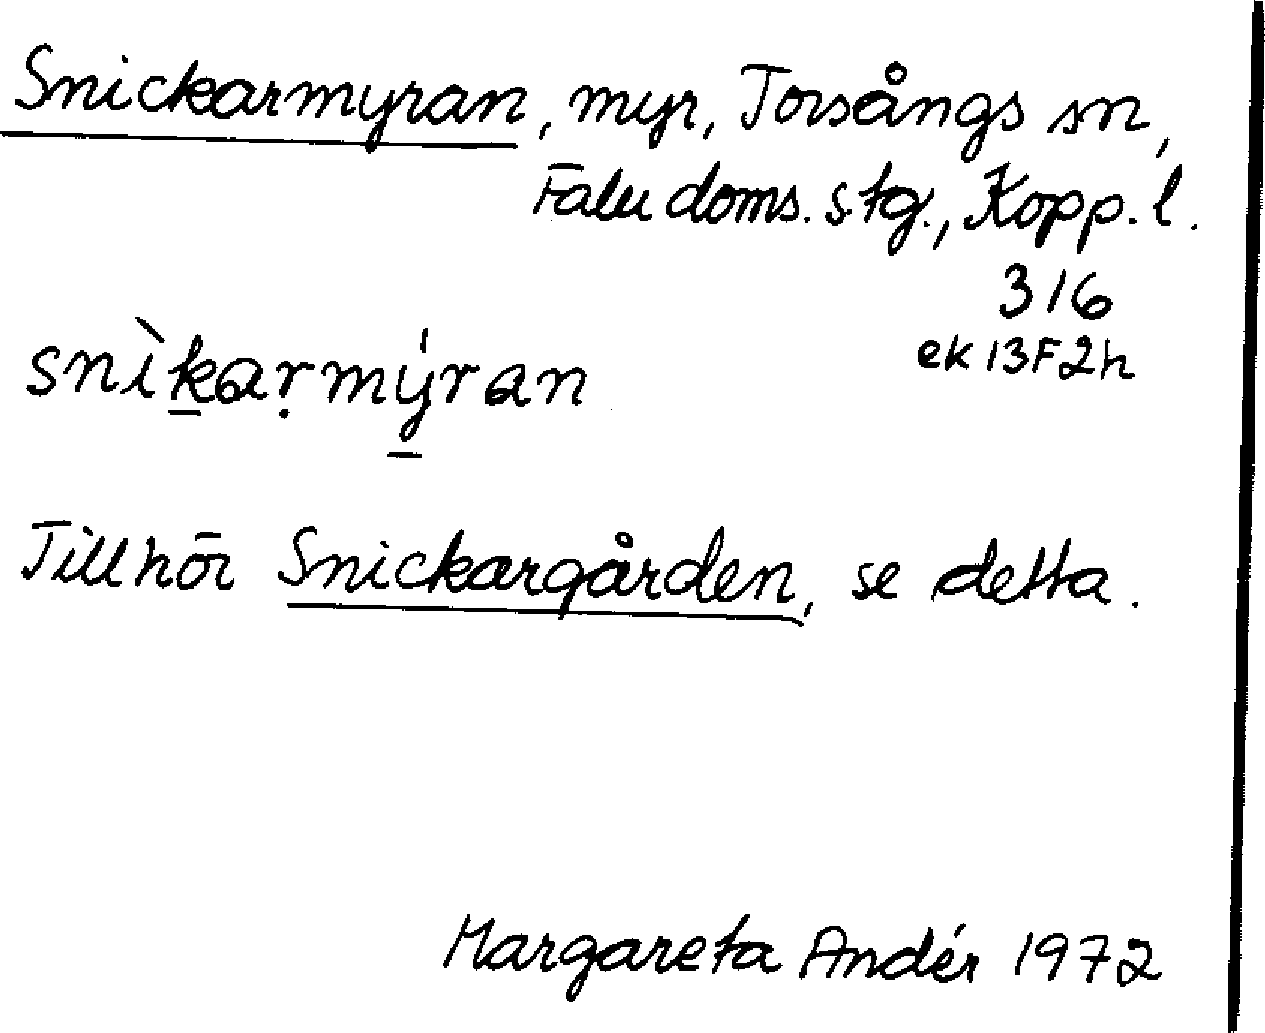 Snickarmyran, myr, Torsångs sn,
Falu doms. stg., Kopp. l.
316
ek 13F2h
snìk̲aṛmý̲ran
Tillhör Snickargården, se detta.
Margareta Andér 1972